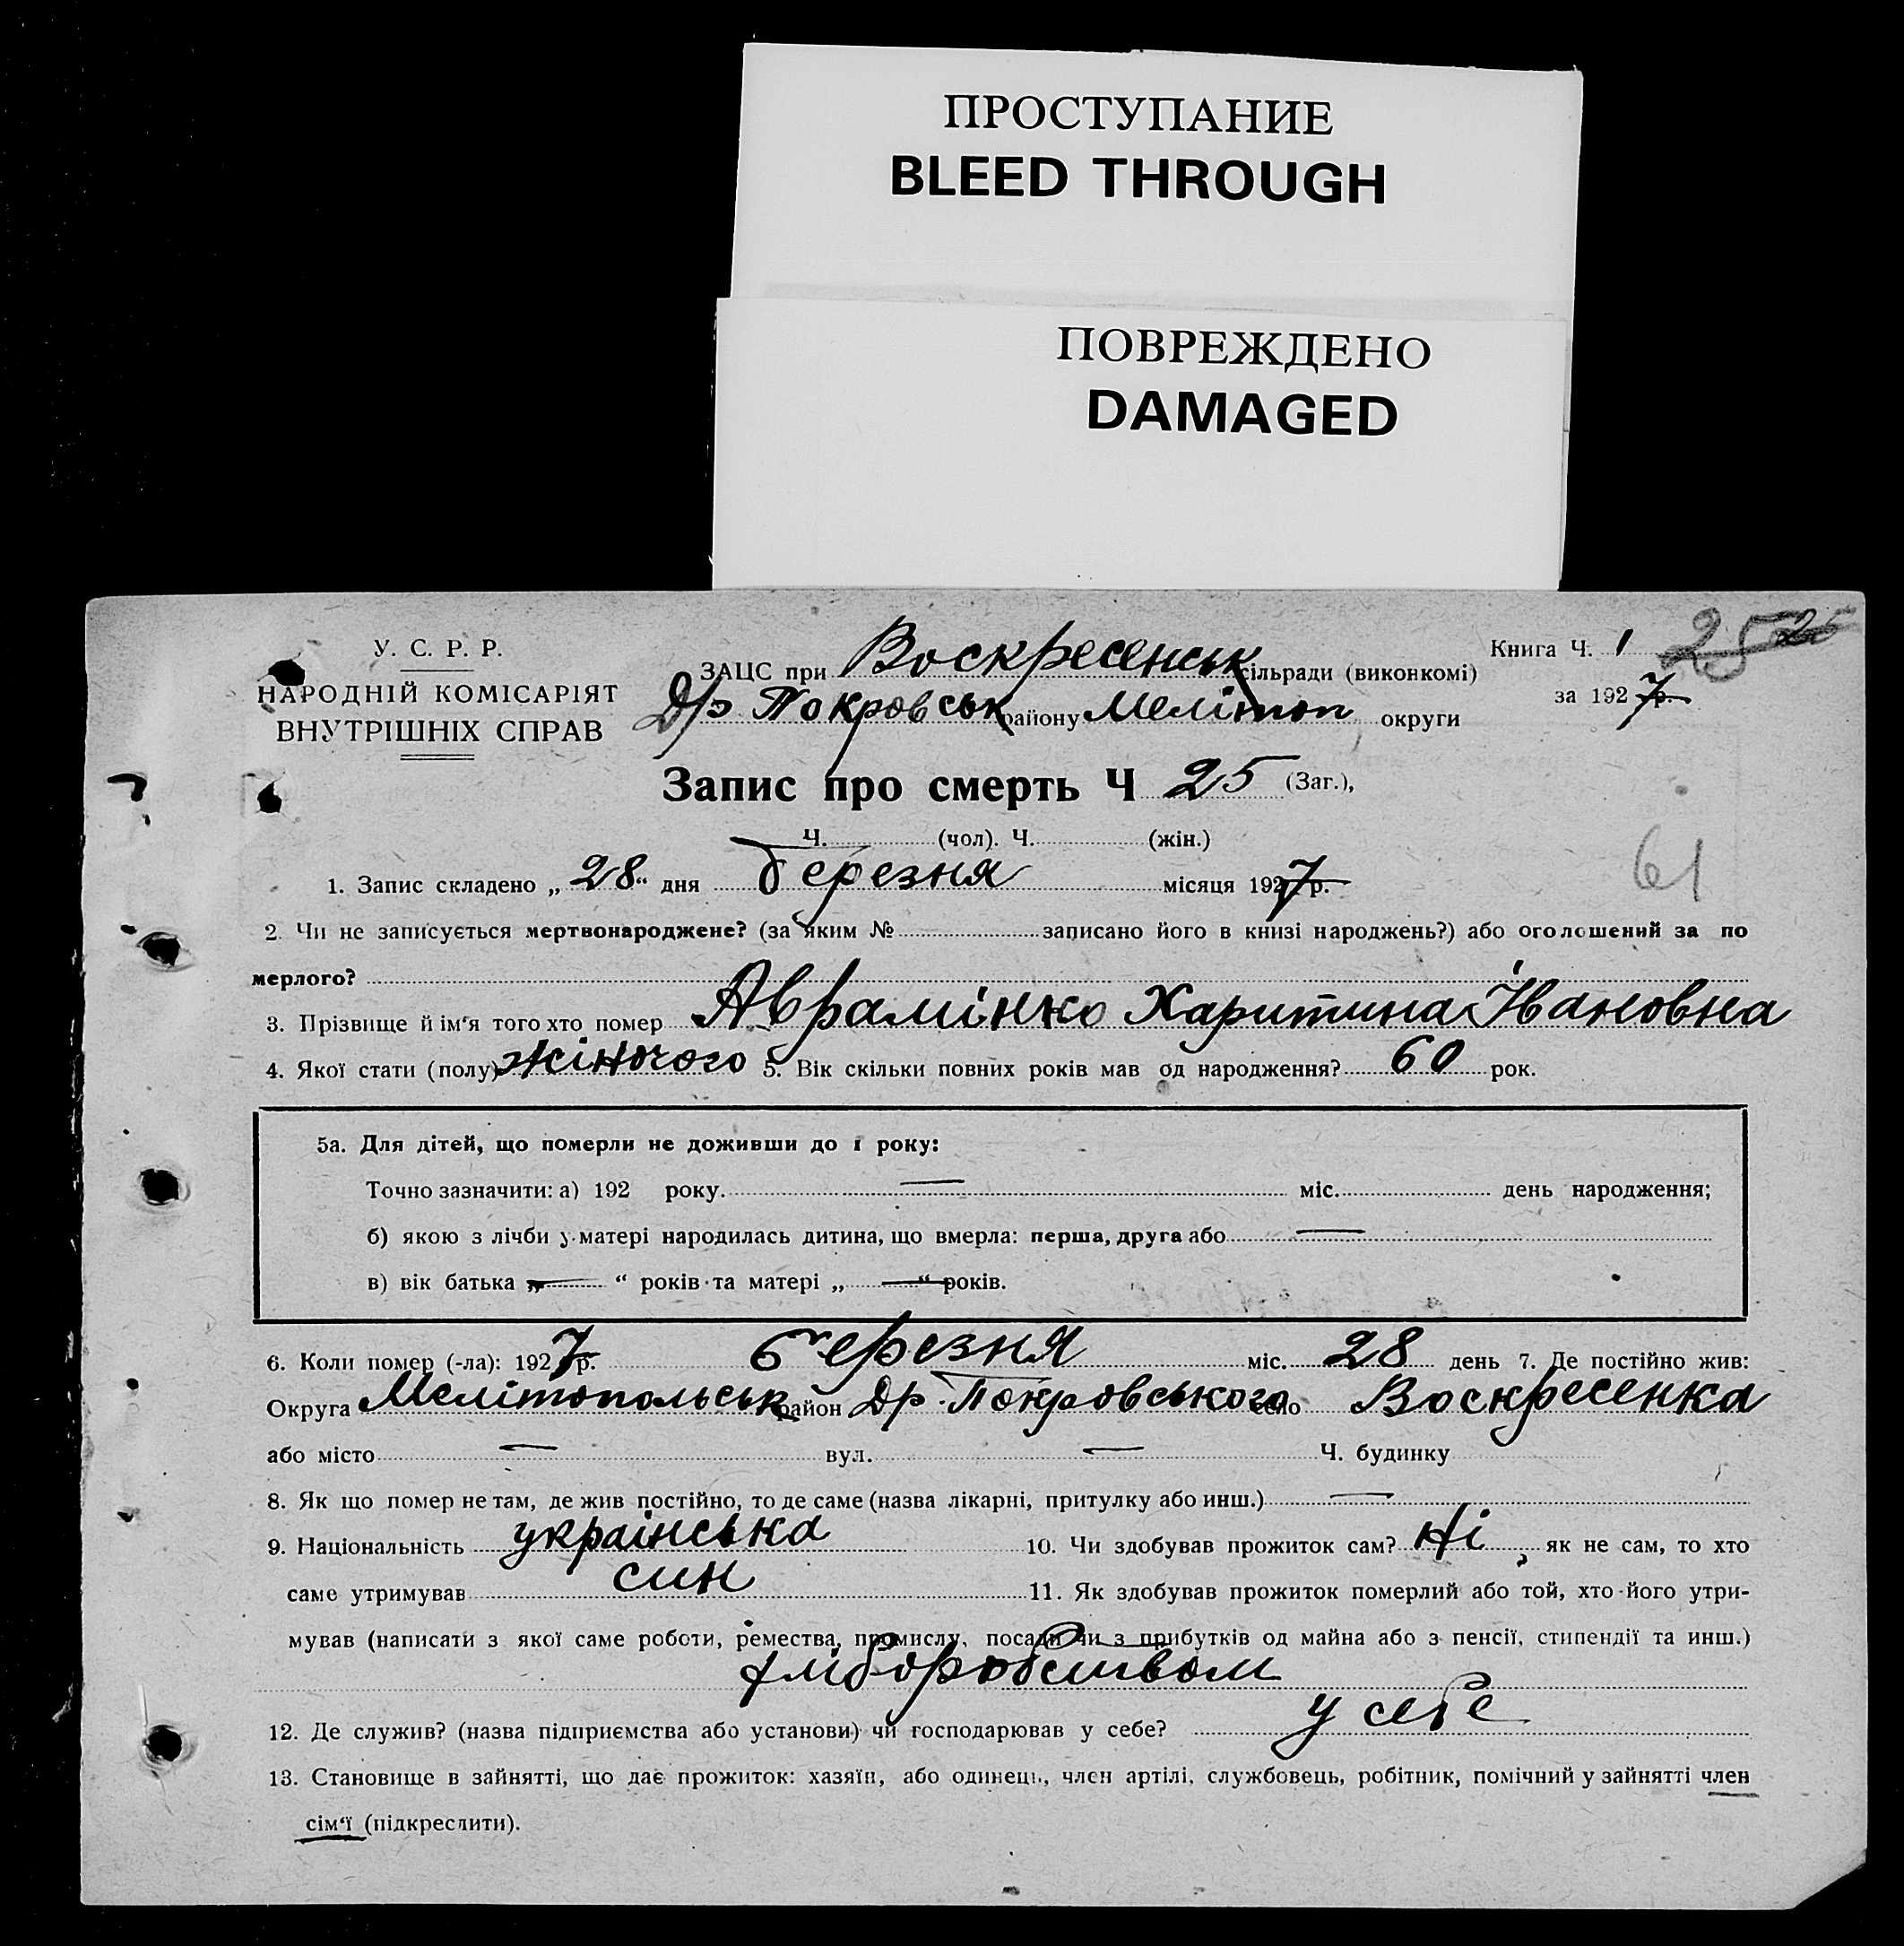 ПРОСТУПАНИЕ
BLEED THROUGH
ПОВРЕЖДЕНО
DAMAGED
У. С. Р. Р.
НАРОДНІЙ КОМІСАРІЯТ
ВНУТРІШНІХ СПРАВ
ЗАЦС при Воскресенськ сільради (виконкомі)
Др Покровськ району Мелітоп округи
Книга Ч. 1 25
за 1927 р.
Запис про смерть Ч 25 (Заг.),
Ч. (чол). Ч. (жін.)
61
1. Запис складено „28“ дня березня місяця 1927 р.
2. Чи не записується мертвонароджене? (за яким № записано його в книзі народжень?) або оголошений за по
мерлого?
3. Прізвище й ім'я того хто помер Аврамінко Харитина Івановна
4. Якої стати (полу) жіночого 5. Вік скільки повних років мав од народження? 60 рок.
5а. Для дітей, що померли не доживши до 1 року:
Точно зазначити: а) 192 року. — міс. день народження;
б) якою з лічби у матері народилась дитина, що вмерла: перша, друга або —
в) вік батька „—“ років та матері „—“ років.
6. Коли помер (-ла): 1927 р. березня міс. 28 день 7. Де постійно жив:
Округа Мелітопольськ район Др. Покровського село Воскресенка
або місто — вул. — Ч. будинку
8. Як що помер не там, де жив постійно, то де саме (назва лікарні, притулку або инш.) —
9. Національність українська 10. Чи здобував прожиток сам? Ні, як не сам, то хто
саме утримував син 11. Як здобував прожиток померлий або той, хто його утри-
мував (написати з якої саме роботи, ремества, промислу, посади чи з прибутків од майна або з пенсії, стипендії та инш.)
хліборобством
12. Де служив? (назва підприємства або установи) чи господарював у себе? у себе
13. Становище в зайнятті, що дає прожиток: хазяїн, або одинець, член артілі, службовець, робітник, помічний у зайнятті член
сім'ї (підкреслити).